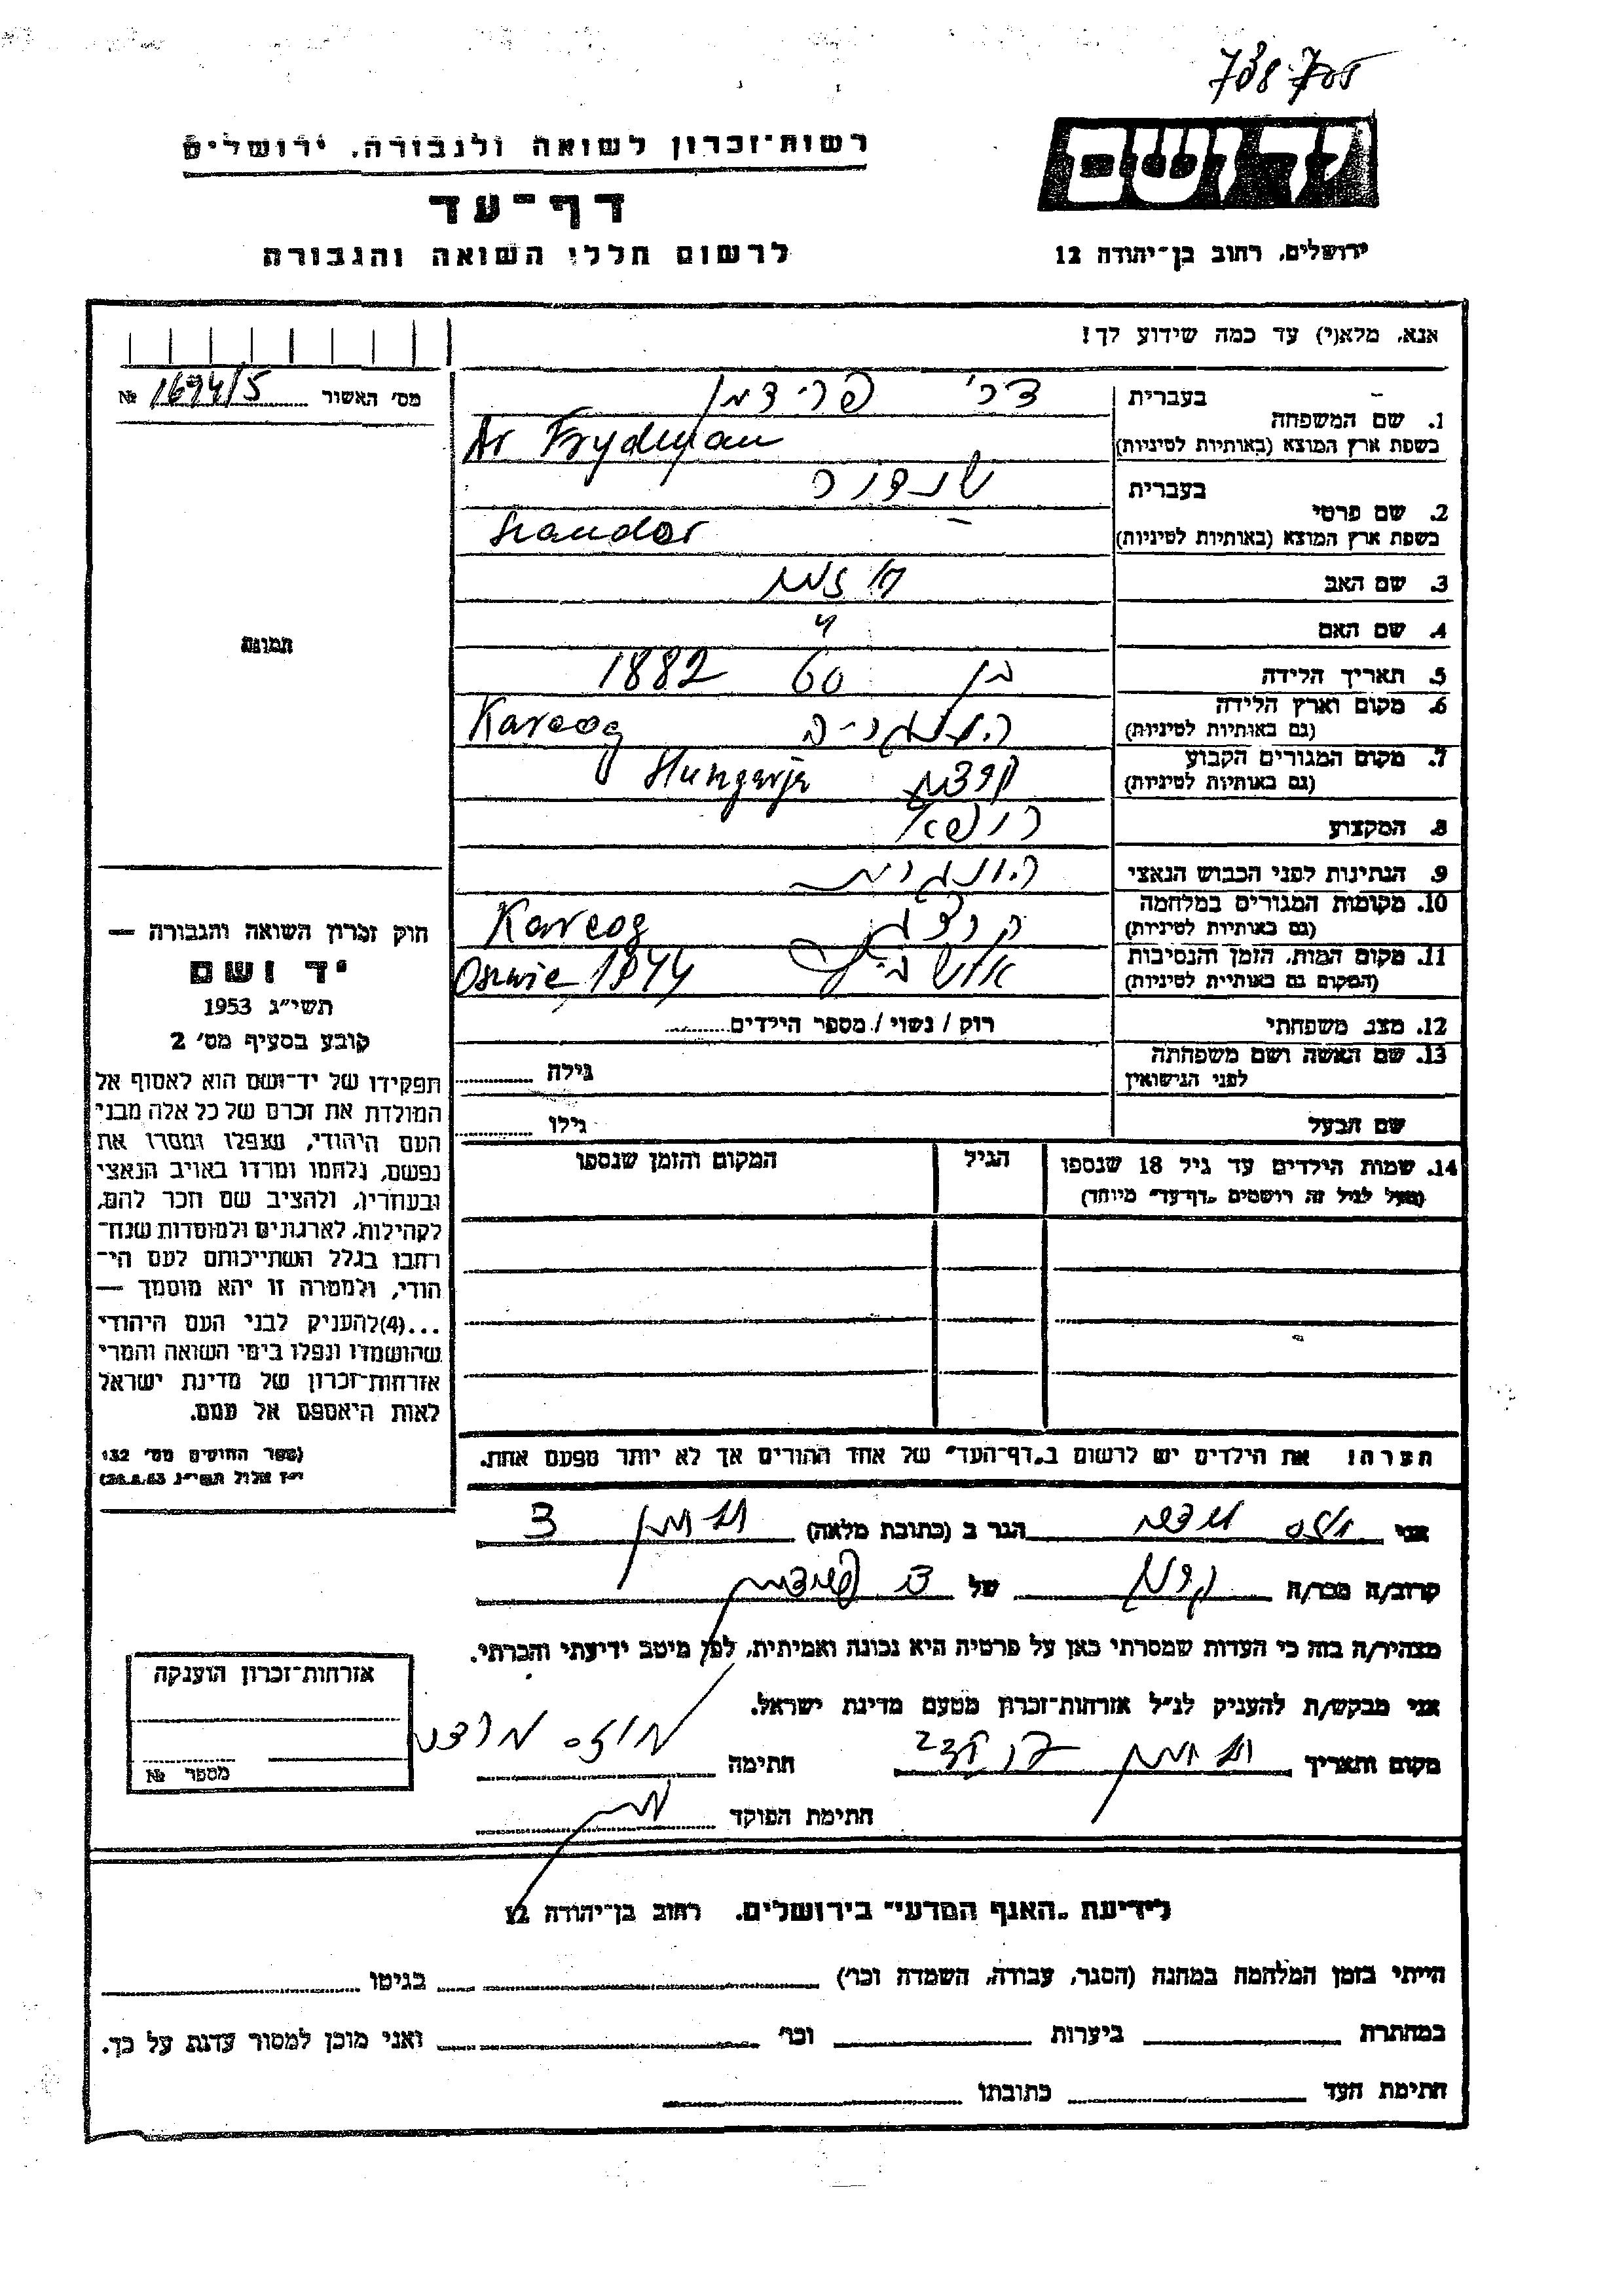 738-705
רשות־זכרון לשואה ולגבורה, ירושלים
יד ושם
דף־עד
לרשום חללי השואה והגבורה
ירושלים, רחוב בן־יהודה 12
אנא, מלא(י) עד כמה שידוע לך!
מס׳ האשור 1694/5 №
בעברית ד״ר פרידמן
1. שם המשפחה
בשפת ארץ המוצא (באותיות לטיניות) Dr Frydman
בעברית שנדור
2. שם פרטי
בשפת ארץ המוצא (באותיות לטיניות) Szandor
3. שם האב
4. שם האם
5. תאריך הלידה בן 60 1882
6. מקום וארץ הלידה הונגריה Karcog
(גם באותיות לטיניות)
7. מקום המגורים הקבוע Hungarja
(גם באותיות לטיניות)
8. המקצוע רופא
9. הנתינות לפני הכבוש הנאצי הונגרית
10. מקומות המגורים במלחמה Karcog
(גם באותיות לטיניות)
11. מקום המות, הזמן והנסיבות Oswic 1944
(המקום גם באותיות לטיניות)
12. מצב משפחתי רווק / נשוי / מספר הילדים
13. שם האשה ושם משפחתה גילה
לפני הנישואין
שם הבעל גילו
14. שמות הילדים עד גיל 18 שנספו הגיל המקום והזמן שנספו
(מעל לגיל זה רושמים „דף־עד״ מיוחד)
תמונה
חוק זכרון השואה והגבורה —
יד ושם
תשי״ג 1953
קובע בסעיף מס׳ 2
תפקידו של יד־ושם הוא לאסוף אל
המולדת את זכרם של כל אלה מבני
העם היהודי, שנפלו ומסרו את
נפשם, נלחמו ומרדו באויב הנאצי
ובעוזריו, ולהציב שם וזכר להם,
לקהילות, לארגונים ולמוסדות שנח־
רבו בגלל השתייכותם לעם הי־
הודי, ולמטרה זו יהא מוסמך —
...(4) להעניק לבני העם היהודי
שהושמדו ונפלו בימי השואה והמרי
אזרחות־זכרון של מדינת ישראל
לאות היאספם אל עמם.
(ספר החוקים מס׳ 132
י״ז אלול תשי״ג 28.8.53)
הערה! את הילדים יש לרשום ב„דף־העד״ של אחד ההורים אך לא יותר מפעם אחת.
אני הגר ב (כתובת מלאה)
קרוב/ה מכר/ה של
מצהיר/ה בזה כי העדות שמסרתי כאן על פרטיה היא נכונה ואמיתית, לפי מיטב ידיעתי והכרתי.
אני מבקש/ת להעניק לנ״ל אזרחות־זכרון מטעם מדינת ישראל.
מקום ותאריך חתימה
חתימת הפוקד
אזרחות־זכרון הוענקה
מספר №
לידיעת „האגף המדעי״ בירושלים, רחוב בן־יהודה 12
הייתי בזמן המלחמה במחנה (הסגר, עבודה, השמדה וכו׳) בגיטו
במחתרת ביערות וכו׳ ואני מוכן למסור עדות על כך.
חתימת העד כתובתו